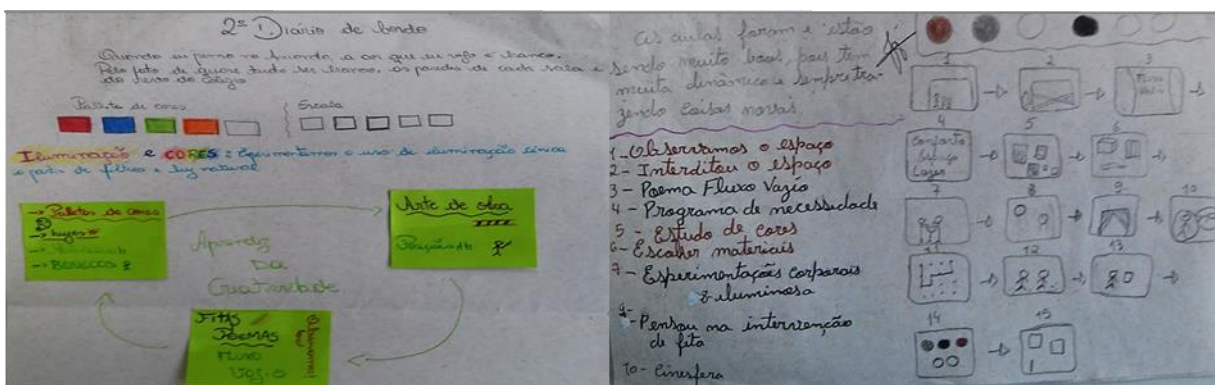 2º Diário de bordo
Quando eu penso no mundo a cor que eu vejo é branco.
Pelo fato de quase tudo ser branco, as paredes de cada sala e
do teto do colégio
Palleta de cores
Escala
Iluminação e CORES: Experimentamos o uso de iluminação cênica
a partir de filtros e luz natural
→ Paletas de cores
→ luzes
→ BONECOS
Arte de
Aprendiz
DA
Criatividade
Fitas
POEMAS
FLUXO
VAZIO
As aulas foram e estão
sendo muito boas, pois tem
muita dinâmica e sempre tra-
zendo coisas novas.
1-Observamos o espaço
2-Interditou o espaço
3-Poema Fluxo Vazio
4-Programa de necessidade
5-Estudo de cores
6-Escolher materiais
7-Esperimentações corporais
8-iluminosa
9-
-Pensou na intervenção
de fita
10-Cinesfera
1 2 3
Fluxo
Vazio
4 5 6
Conforto
Espaço
Lazer
7 8 9 10
11 12 13
14 15